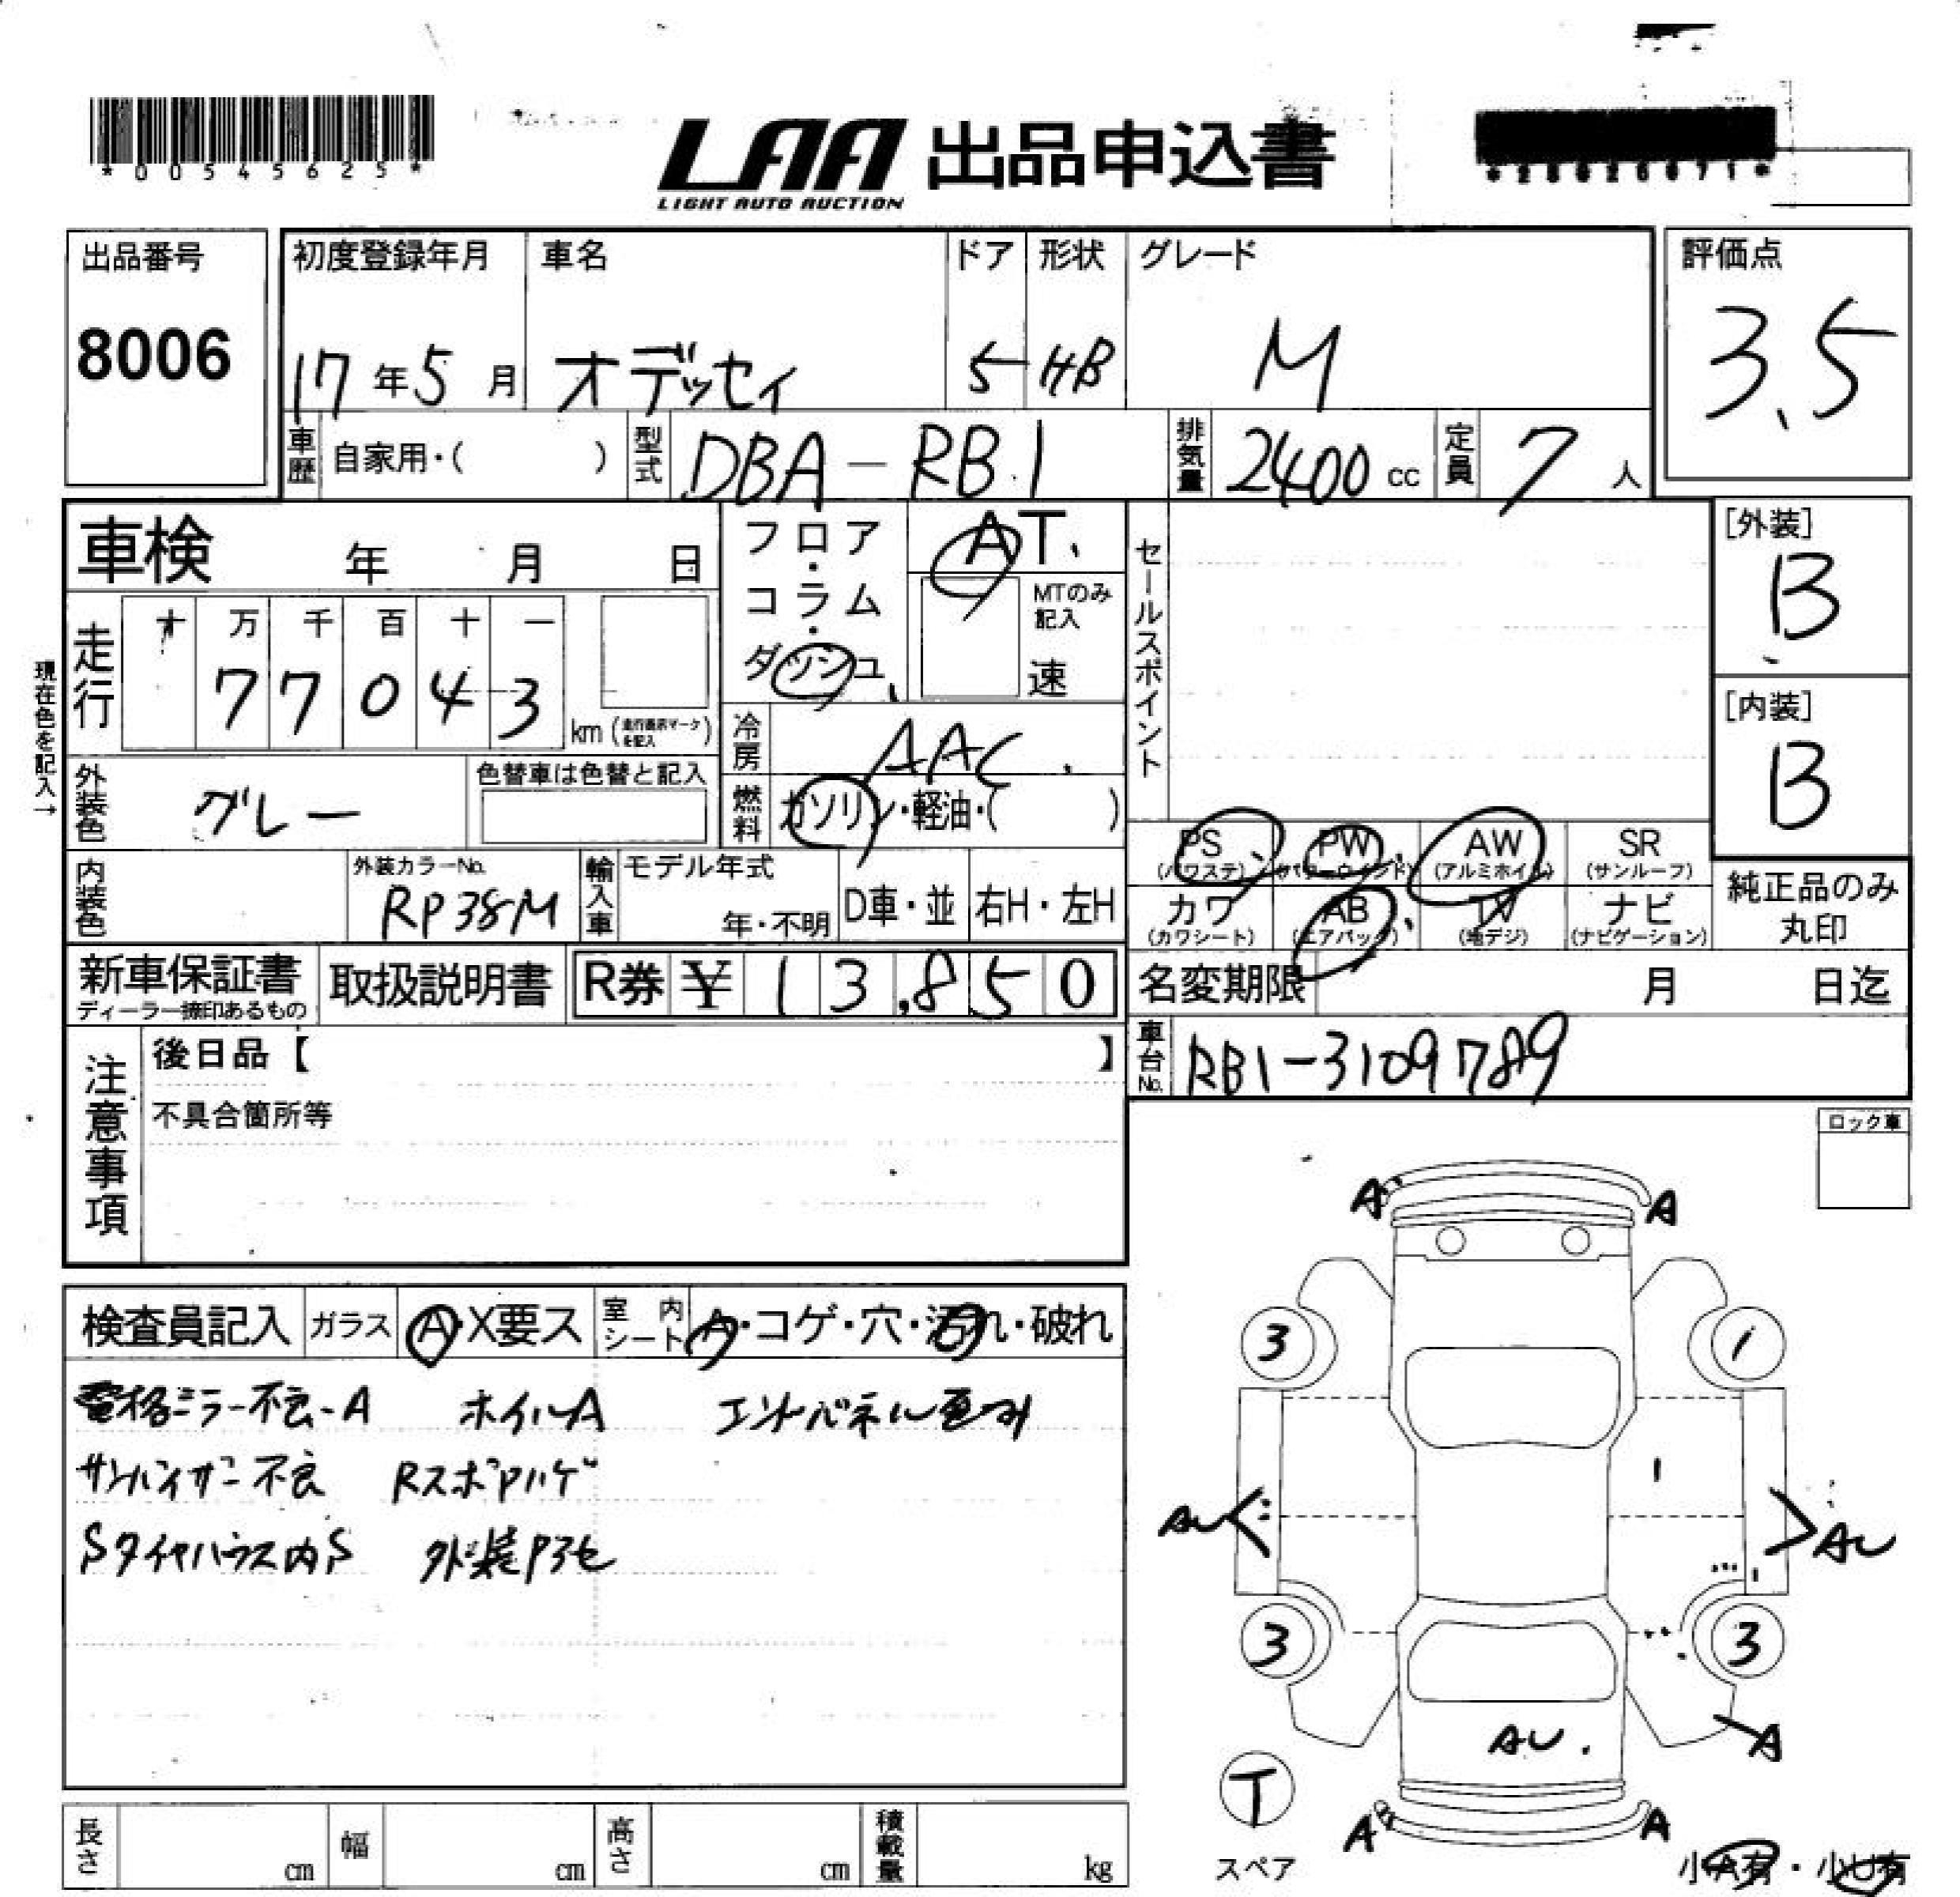 *00545625*
LAA 出品申込書
LIGHT AUTO AUCTION
出品番号 初度登録年月 車名 ドア 形状 グレード 評価点
8006 17年5月 オデッセイ 5 HB M 3.5
車歴 自家用・( ) 型式 DBA-RB1 排気量 2400cc 定員 7人
車検 年 月 日 フロア・コラム・ダッシュ AT セールスポイント [外装]
B
MTのみ記入
速
現在色を記入→
走行 十 万 千 百 十 一
77043 km (走行距離マークを記入)
[内装]
B
冷房 AAC
外装色 グレー 色替車は色替と記入 燃料 ガソリン・軽油・( )
PS (パワステ) PW (パワーウインド) AW (アルミホイル) SR (サンルーフ)
内装色 外装カラーNo. RP38M 輸入車 モデル年式 年・不明 D車・並 右H・左H
カワ (カワシート) AB (エアバッグ) TV (地デジ) ナビ (ナビゲーション) 純正品のみ丸印
新車保証書 ディーラー捺印あるもの 取扱説明書 R券 ¥ 13,850 名変期限 月 日迄
注意事項 後日品【 】 車台No. RB1-3109789
不具合箇所等
ロック車
検査員記入 ガラス A・X要ス 室内シート A・コゲ・穴・汚れ・破れ
電格ミラー不良-A ホイルA エンドパネル歪み
サンバイザー不良 Rスポ Pハゲ
Sタイヤハウス内S 外装P3セ
A A
3 1
AU AU
3 3
AU. A
T
A A
スペア 小A有・小U有
長さ cm 幅 cm 高さ cm 積載量 kg